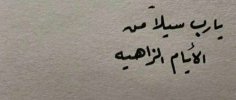 يارب سيلاً من
الأيام الزاهيه